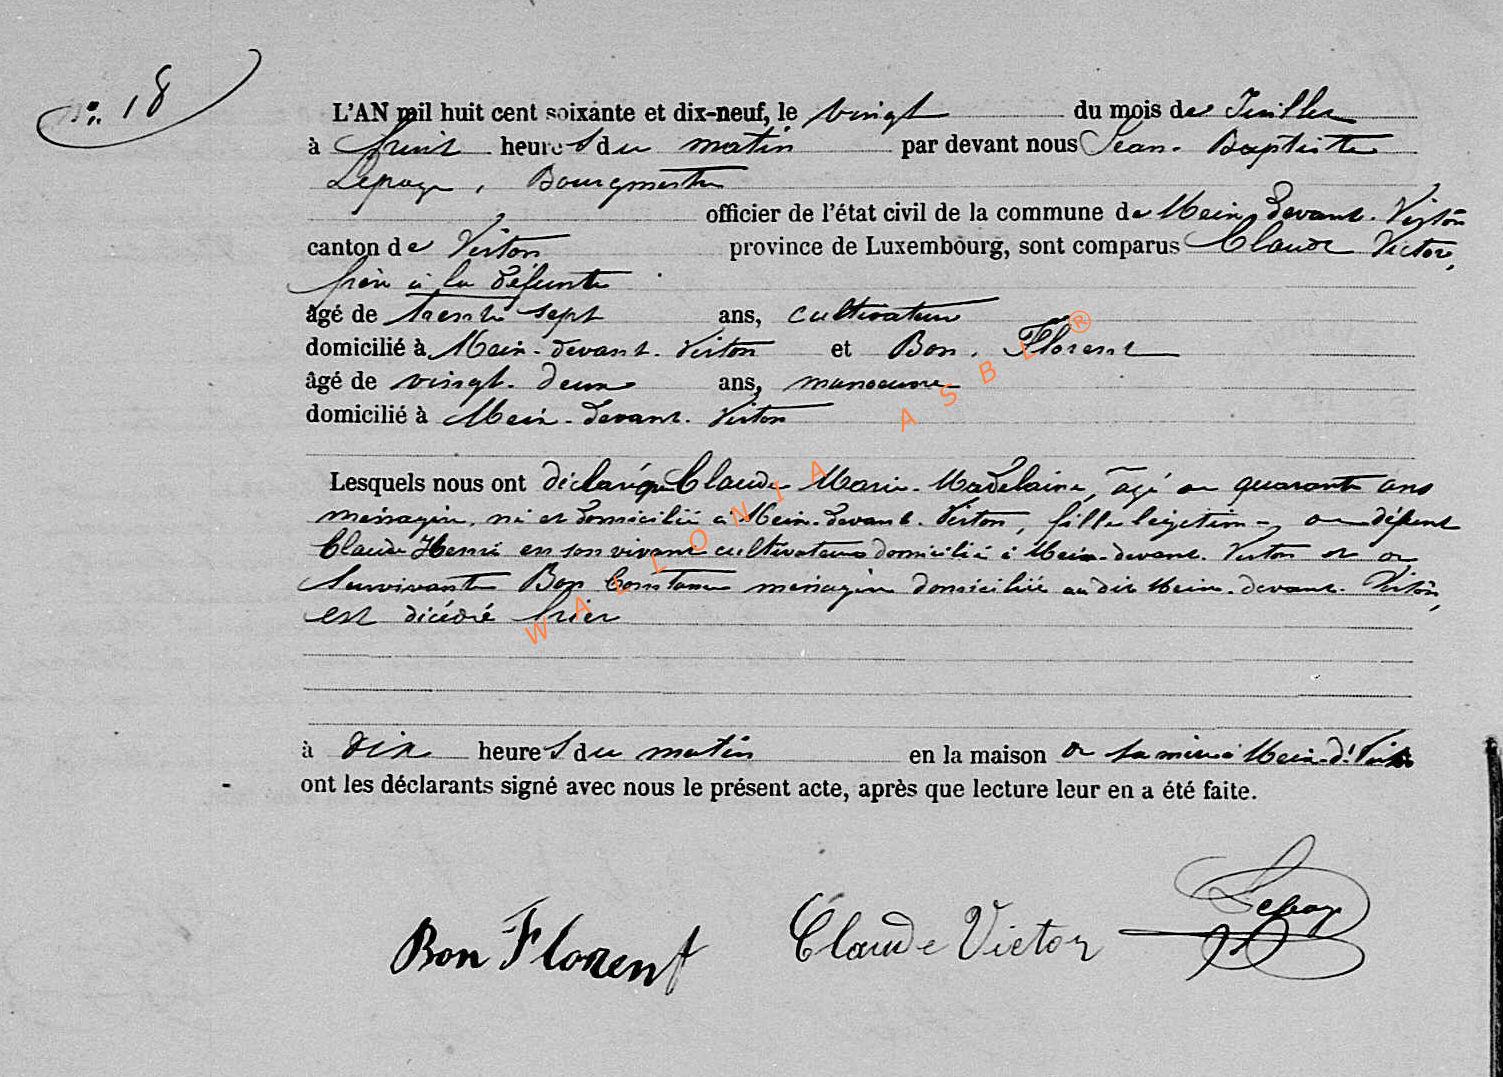 n° 18
L'AN mil huit cent soixante et dix-neuf, le vingt du mois de Juillet
à huit heures du matin par devant nous Jean-Baptiste
Lepage, Bourgmestre
officier de l'état civil de la commune de Meix-devant-Virton
canton de Virton province de Luxembourg, sont comparus Claude Victor,
frère à la défunte
âgé de trente sept ans, cultivateur
domicilié à Meix-devant-Virton et Bon Florent
âgé de vingt-deux ans, manoeuvre
domicilié à Meix-devant-Virton
Lesquels nous ont déclaré que Claude Marie-Madelaine, âgé de quarante ans
ménagère, né et domicilié à Meix-devant-Virton, fille légitime de défunt
Claude Henri en son vivant cultivateur domicilié à Meix-devant-Virton et de
survivante Bon Constance ménagère domiciliée au dit Meix-devant-Virton,
est décédé hier
à dix heures du matin en la maison de sa mère à Meix-dt-Virton
ont les déclarants signé avec nous le présent acte, après que lecture leur en a été faite.
Bon Florent Claude Victor Lepage
WALLONIA ASBL ®